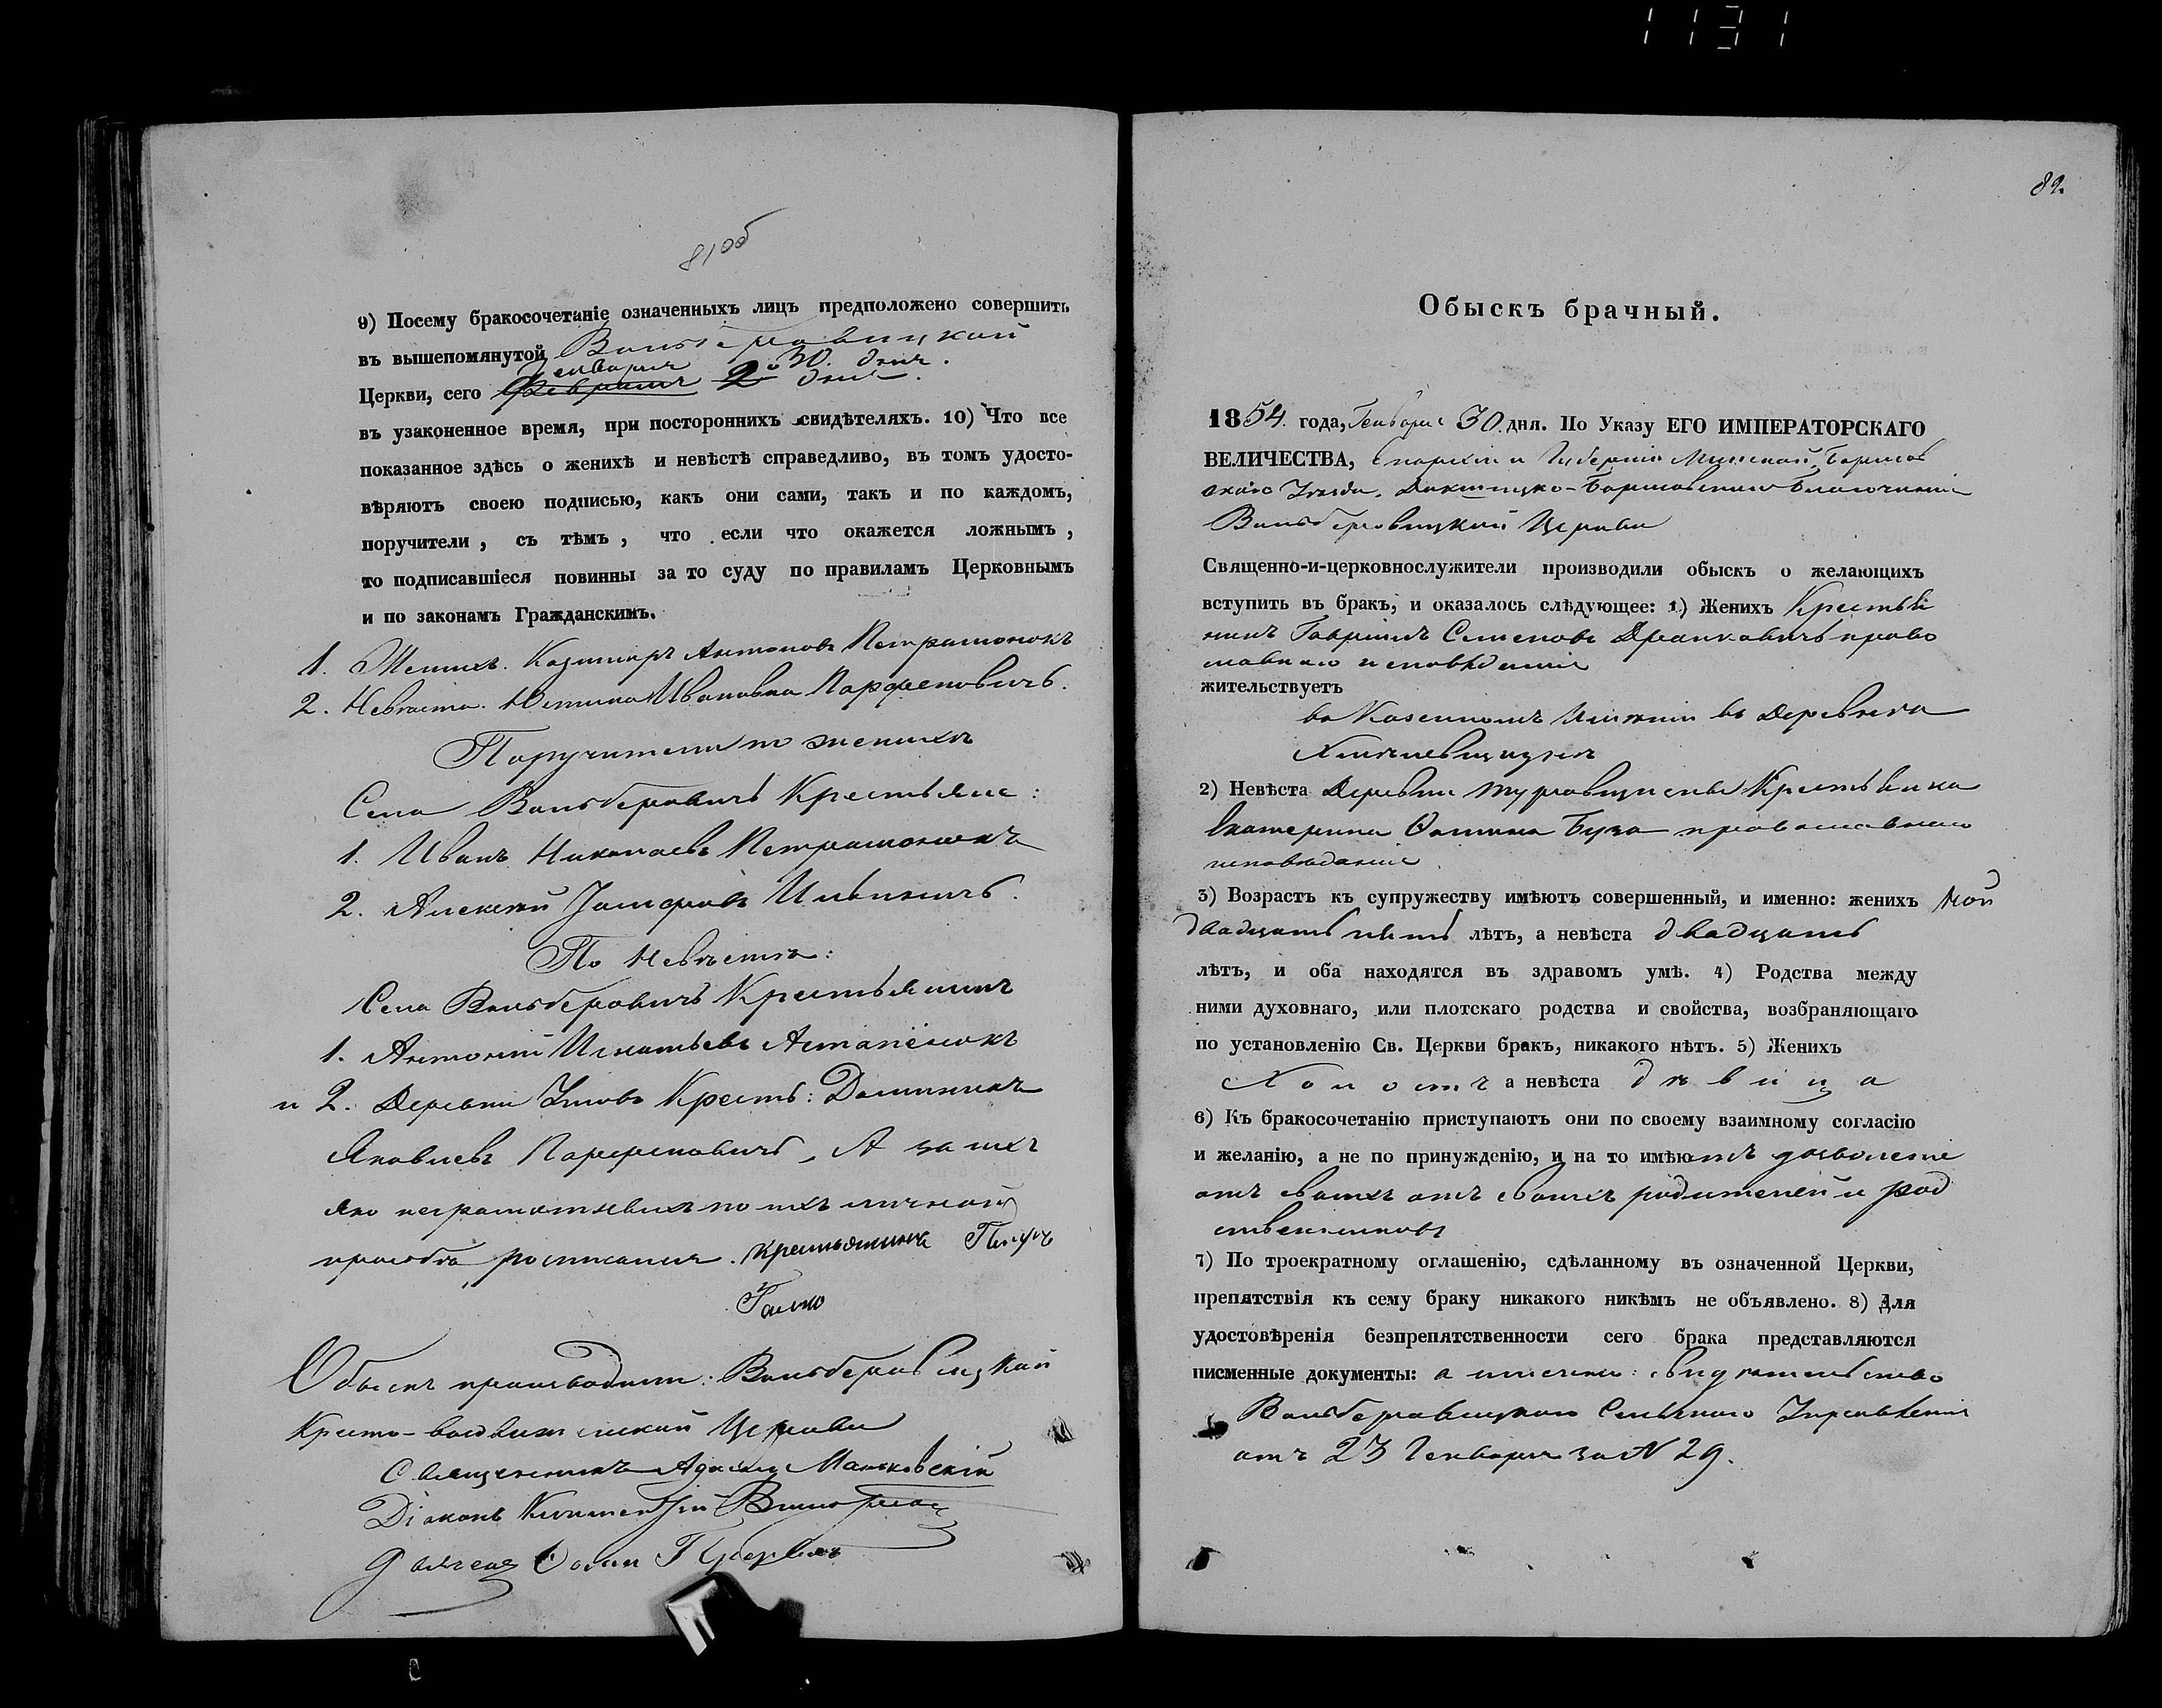 1131
81об
9) Посему бракосочетаніе означенныхъ лицъ предположено совершить
въ вышепомянутой Вольберовицкой
Генваря 30. дня.
Церкви, сего Февраля 2 дня.
въ узаконенное время, при постороннихъ свидѣтеляхъ. 10) Что все
показанное здѣсь о женихѣ и невѣстѣ справедливо, въ томъ удосто-
вѣряютъ своею подписью, какъ они сами, такъ и по каждомъ,
поручители, съ тѣмъ, что если что окажется ложнымъ,
то подписавшіеся повинны за то суду по правиламъ Церковнымъ
и по законамъ Гражданскимъ.
1. Женихъ. Казимиръ Антоновъ Петрашонокъ
2. Невѣста. Юстина Иванова Парфеновичъ.
Поручители по женихѣ
Села Вольберовичъ Крестьяне:
1. Иванъ Николаевъ Петрашонокъ
2. Алексѣй
По Невѣстѣ:
Села Вольберовичъ Крестьянинъ
1. Антоній Игнатьевъ Астапёнокъ
и 2. Деревни Крестъ: Доминикъ
Яковлевъ Парфеновичъ, А за ихъ
яко неграмотныхъ по ихъ личной
прозьбѣ росписался. Крестьянинъ
Обыскъ производили: Вольберовицкой
Кресто-воздвиженской Церкви
Священникъ Маньковскій
Діаконъ
82.
Обыскъ брачный.
1854. года, Генваря 30. дня. По Указу ЕГО ИМПЕРАТОРСКАГО
ВЕЛИЧЕСТВА, Епархіи и Губерніи Минской, Борисов
скаго Уѣзда, Докшицко-Борисовскаго Благочинія
Вольберовицкой Церкви
Священно-и-церковнослужители производили обыскъ о желающихъ
вступить въ бракъ, и оказалось слѣдующее: 1) Женихъ Крестья
нинъ Гавріилъ Семеновъ Дранковичъ право
славнаго исповѣданія
жительствуетъ
въ Казенномъ Имѣніи въ Деревнѣ
2) Невѣста Деревни Крестьянка
Екатерина Фомина Буза православнаго
исповѣданія.
3) Возрастъ къ супружеству имѣютъ совершенный, и именно: женихъ мой
двадцать пять лѣтъ, а невѣста двадцать
лѣтъ, и оба находятся въ здравомъ умѣ. 4) Родства между
ними духовнаго, или плотскаго родства и свойства, возбраняющаго
по установленію Св. Церкви бракъ, никакого нѣтъ. 5) Женихъ
Холостъ а невѣста дѣвица
6) Къ бракосочетанію приступаютъ они по своему взаимному согласію
и желанію, а не по принужденію, и на то имѣютъ дозволеніе
отъ своихъ отъ своихъ родителей и род
ственниковъ
7) По троекратному оглашенію, сдѣланному въ означенной Церкви,
препятствія къ сему браку никакого никѣмъ не объявлено. 8) Для
удостовѣренія безпрепятственности сего брака представляются
писменные документы: а именно: свидѣтельство
Вольберовицкаго Сельскаго Управленія
отъ 23 Генваря за № 29.